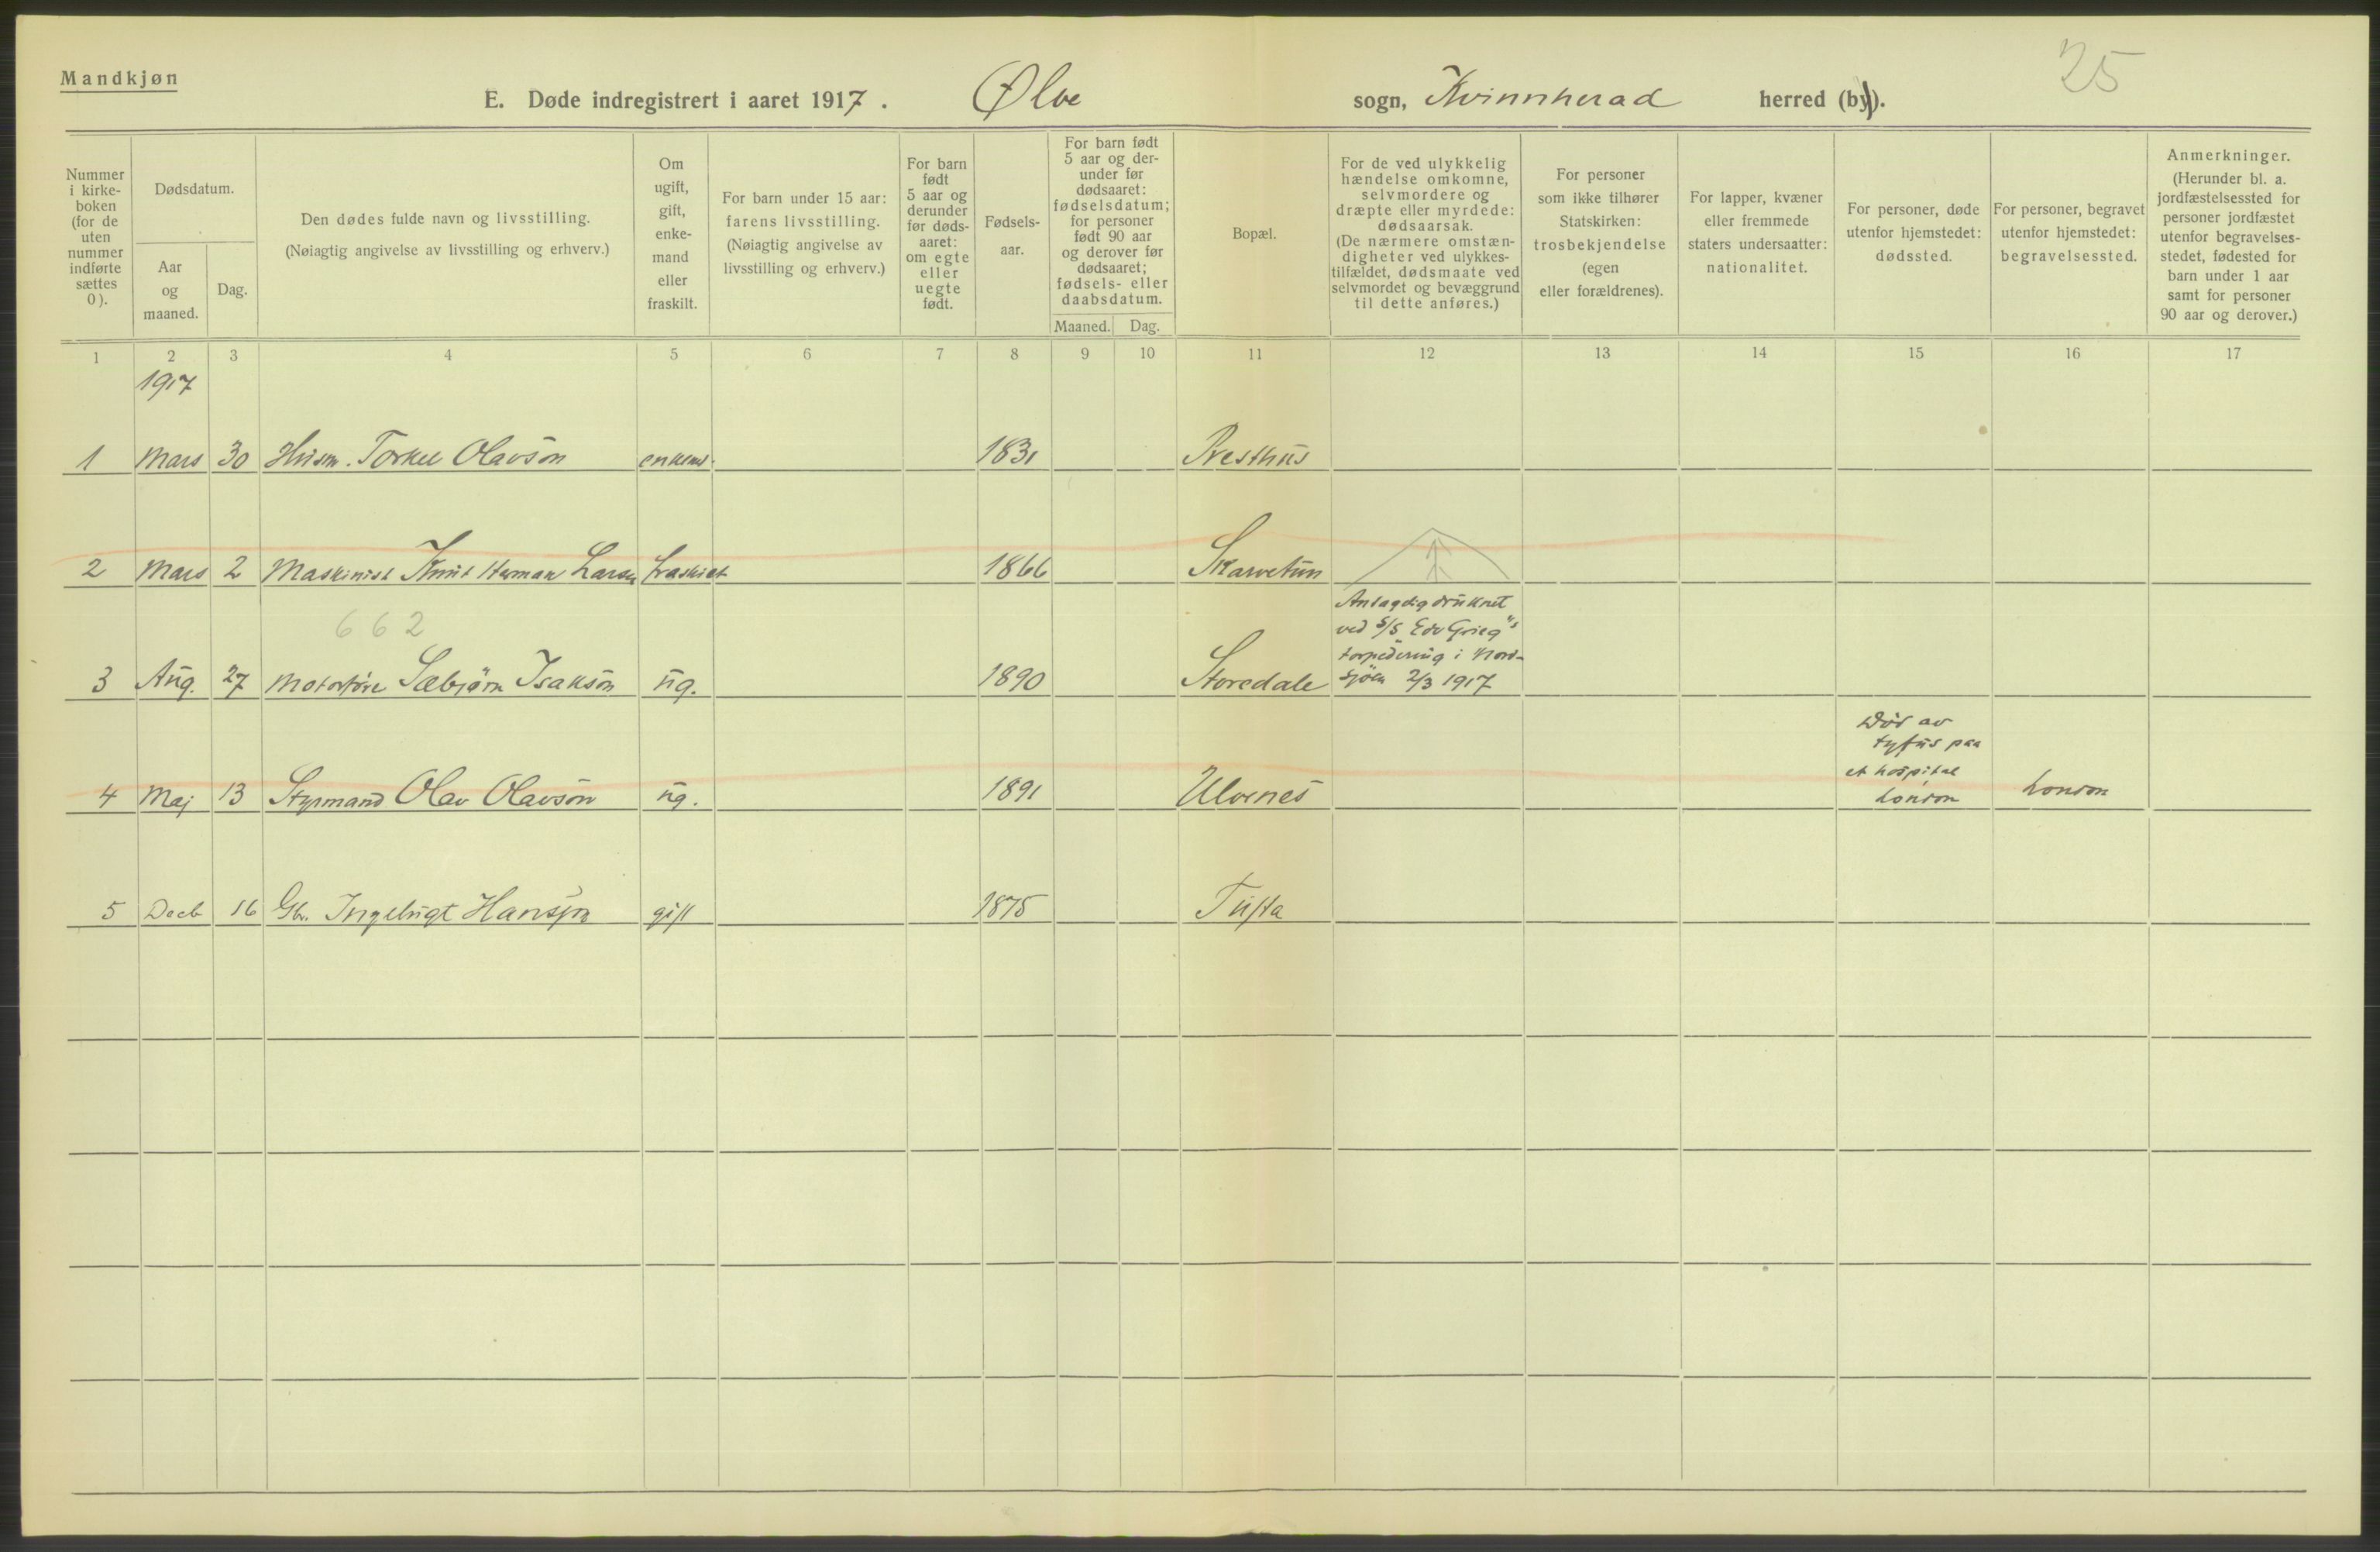 Mandkjøn
25
E. Døde indregistrert i aaret 1917. Ølve sogn, Kvinnherad herred (by).
Nummer i kirkeboken (for de uten nummer indførte sættes 0).
Dødsdatum.
Aar og maaned.
Dag.
Den dødes fulde navn og livsstilling.
(Nøiagtig angivelse av livsstilling og erhverv.)
Om ugift, gift, enkemand eller fraskilt.
For barn under 15 aar: farens livsstilling.
(Nøiagtig angivelse av livsstilling og erhverv.)
For barn født 5 aar og derunder før dødsaaret: om egte eller uegte født.
Fødselsaar.
For barn født 5 aar og derunder før dødsaaret: fødselsdatum; for personer født 90 aar og derover før dødsaaret; fødsels- eller daabsdatum.
Maaned. Dag.
Bopæl.
For de ved ulykkelig hændelse omkomne, selvmordere og dræpte eller myrdede: dødsaarsak.
(De nærmere omstændigheter ved ulykkestilfældet, dødsmaate ved selvmordet og bevæggrund til dette anføres.)
For personer som ikke tilhører Statskirken: trosbekjendelse (egen eller forældrenes).
For lapper, kvæner eller fremmede staters undersaatter: nationalitet.
For personer, døde utenfor hjemstedet: dødssted.
For personer, begravet utenfor hjemstedet: begravelsessted.
Anmerkninger.
(Herunder bl. a. jordfæstelsessted for personer jordfæstet utenfor begravelsesstedet, fødested for barn under 1 aar samt for personer 90 aar og derover.)
1 2 3 4 5 6 7 8 9 10 11 12 13 14 15 16 17
1917
1 Mars 30 Husm. Torkel Olavson enkem. 1831 Presthus
2 Mars 2 Maskinist Knut Herman Larsen fraskilt 1866 Skarvetun
662
Antagelig druknet
ved S/S "Edv Grieg"s
torpedering i Nord-
sjøen 2/3 1917
3 Aug. 27 Motorfører Sæbjørn Isakson ug. 1890 Storedale
Død av
tyfus paa
et hospital
London
4 Maj 13 Styrmand Olav Olavson ug. 1891 Ulvenes London
5 Decb 16 Gbr. Ingebrigt Hanson gift 1875 Tufta